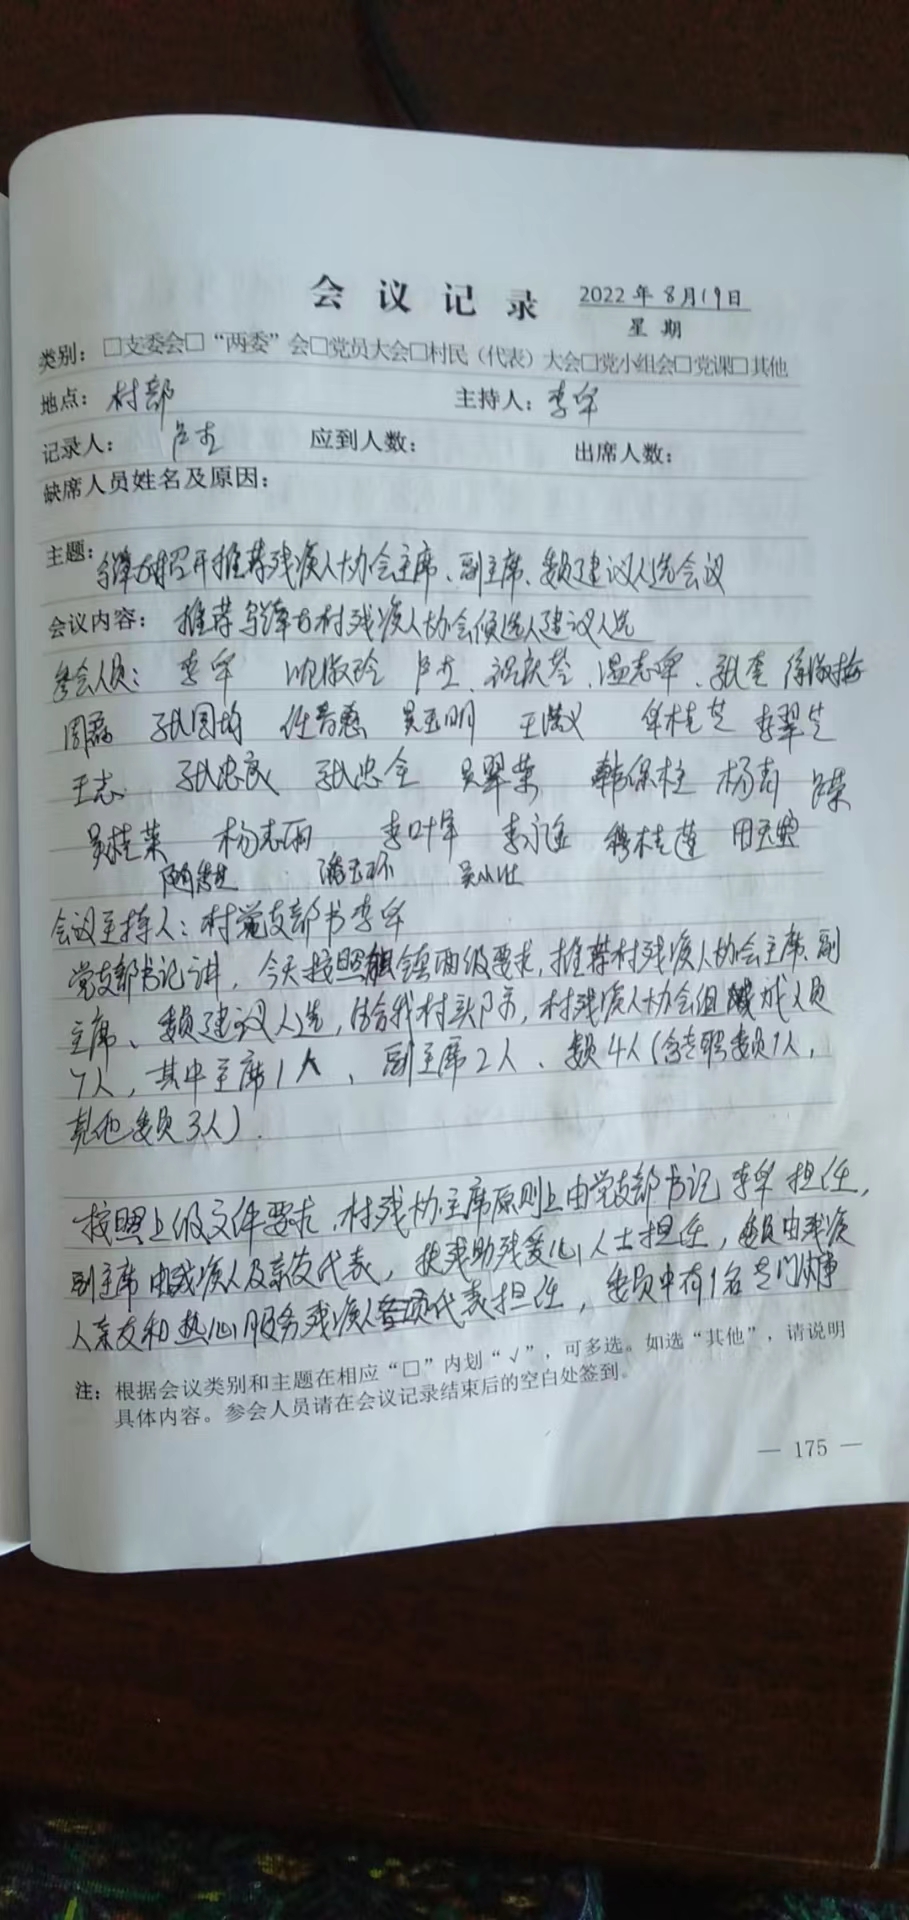 会议记录 2022年8月19日
星期
类别：□支委会□“两委”会□党员大会□村民（代表）大会□党小组会□党课□其他
地点：村部 主持人：李军
记录人： 应到人数： 出席人数：
缺席人员姓名及原因：
主题：召开推荐残疾人协会主席、副主席、委员建议人选会议
会议内容：推荐村残疾人协会候选人建议人选
参会人员：李军 沈淑玲 温志军、张奎
周磊 吴玉明 王满义 李翠芝
王志 张忠良 张忠全 吴翠荣 韩保柱 杨青
吴桂荣 杨志丽 李叶军 李永金 穆桂莲 田玉宝
潘玉环
会议主持人：村党支部书李军
党支部书记讲，今天按照镇两级要求，推荐村残疾人协会主席、副
主席、委员建议人选，结合我村实际，村残疾人协会组成人员
7人，其中主席1人、副主席2人、委员4人（含专职委员1人，
其他委员3人）.
按照上级文件要求，村残协主席原则上由党支部书记李军担任，
副主席由残疾人及亲友代表，扶残助残爱心人士担任，委员由残疾
人亲友和热心服务残疾人代表担任，委员中有1名专门从事
注：根据会议类别和主题在相应“□”内划“√”，可多选。如选“其他”，请说明
具体内容。参会人员请在会议记录结束后的空白处签到。
— 175 —